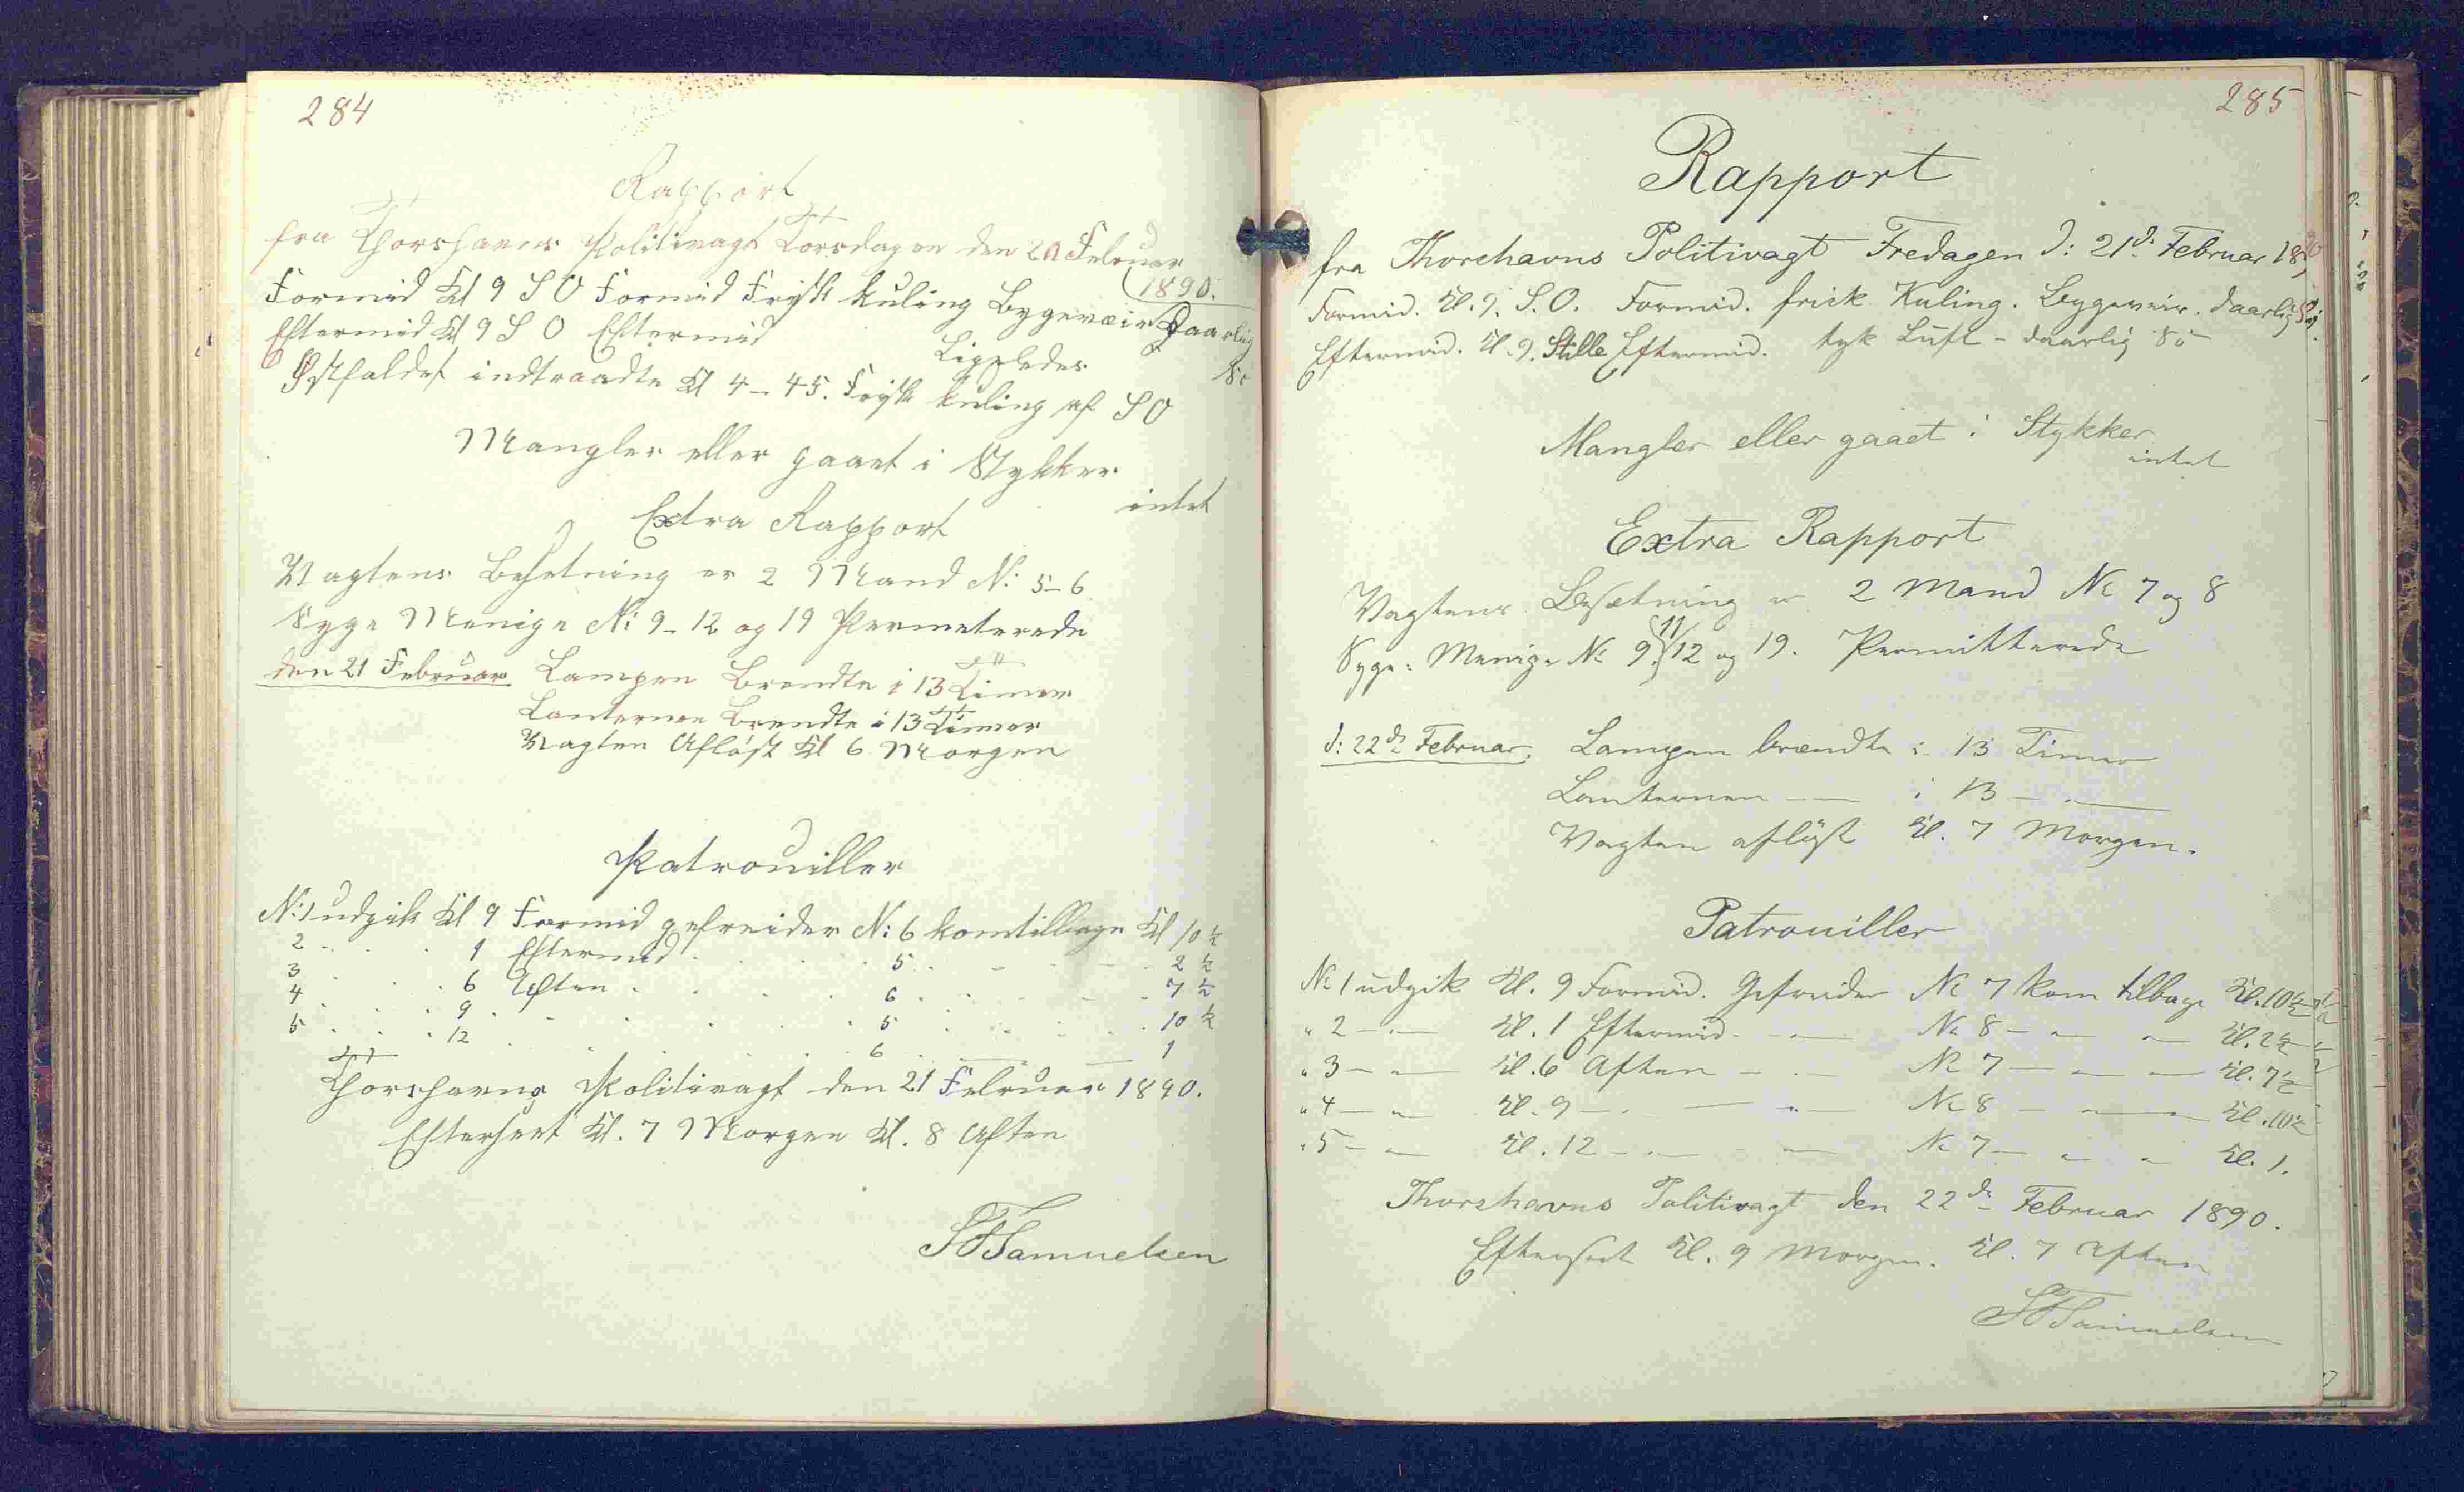 284
Rapport
fra Thorshavns Politivagt Torsdagen den 20 Februar
1890.
Formid Kl 9 S O Formid Frisk kuling Bygeveir Daarlig
Eftermid Kl 9 S O Eftermid Ligeledes So
Østfaldet indtraadte Kl 4-45. Frisk kuling af S O
Mangler eller gaaet i Stykker
intet
Extra Rapport
Vagtens Besetning er 2 Mand N: 5-6
Syge Menige N: 9-12 og 19 Permeterede
den 21 Februar Lampen Brendte i 13 Timer
Lanternen Brendte i 13 Timer
Vagten Afløst Kl 6 Morgen
Patrouiller
N: 1 udgik Kl 9 Formid gefreider N: 6 kom tilbage Kl 10 ½
2 . . . 1 Eftermid . . . 5 . . . 2 ½
3 . . . 6 Aften . . . 6 . . . 7 ½
4 . . . 9 . . . 5 . . . 10 ½
5 . . . 12 . . . 6 . . . 1
Thorshavns Politivagt den 21 Februar 1890.
Efterseet Kl. 7 Morgen Kl. 8 Aften
Samuelsen
285
Rapport
fra Thorshavns Politivagt Fredagen d: 21d: Februar 1890
Formid. Kl. 9. S. O. Formid. frisk Kuling. Bygeveir. daarlig Sø.
Eftermid. Kl. 9. Stille Eftermid. tyk Luft - daarlig Sø
Mangler eller gaaet i Stykker
intet
Extra Rapport
Vagtens Besætning er 2 Mand No 7 og 8
11
Syge: Menige No 9. 12 og 19. Permitterede
d: 22de Februar. Lampen brændte i 13 Timer
Lanternen — i 13 — " —
Vagten afløst Kl. 7 Morgen.
Patrouiller
No 1 udgik Kl. 9 Formid. Gefreider No 7 kom tilbage Kl. 10½
" 2 — " — Kl. 1 Eftermid. — " — No 8 — " — " — Kl. 2½
" 3 — " — Kl. 6 Aften — " — No 7 — " — " — Kl. 7½
" 4 — " — Kl. 9 — " — " — No 8 — " — " — Kl. 10½
" 5 — " — Kl. 12 — " — " — No 7 — " — " — Kl. 1.
Thorshavns Politivagt den 22de Februar 1890.
Efterseet Kl. 9 Morgen. Kl. 7 Aften
Samuelsen